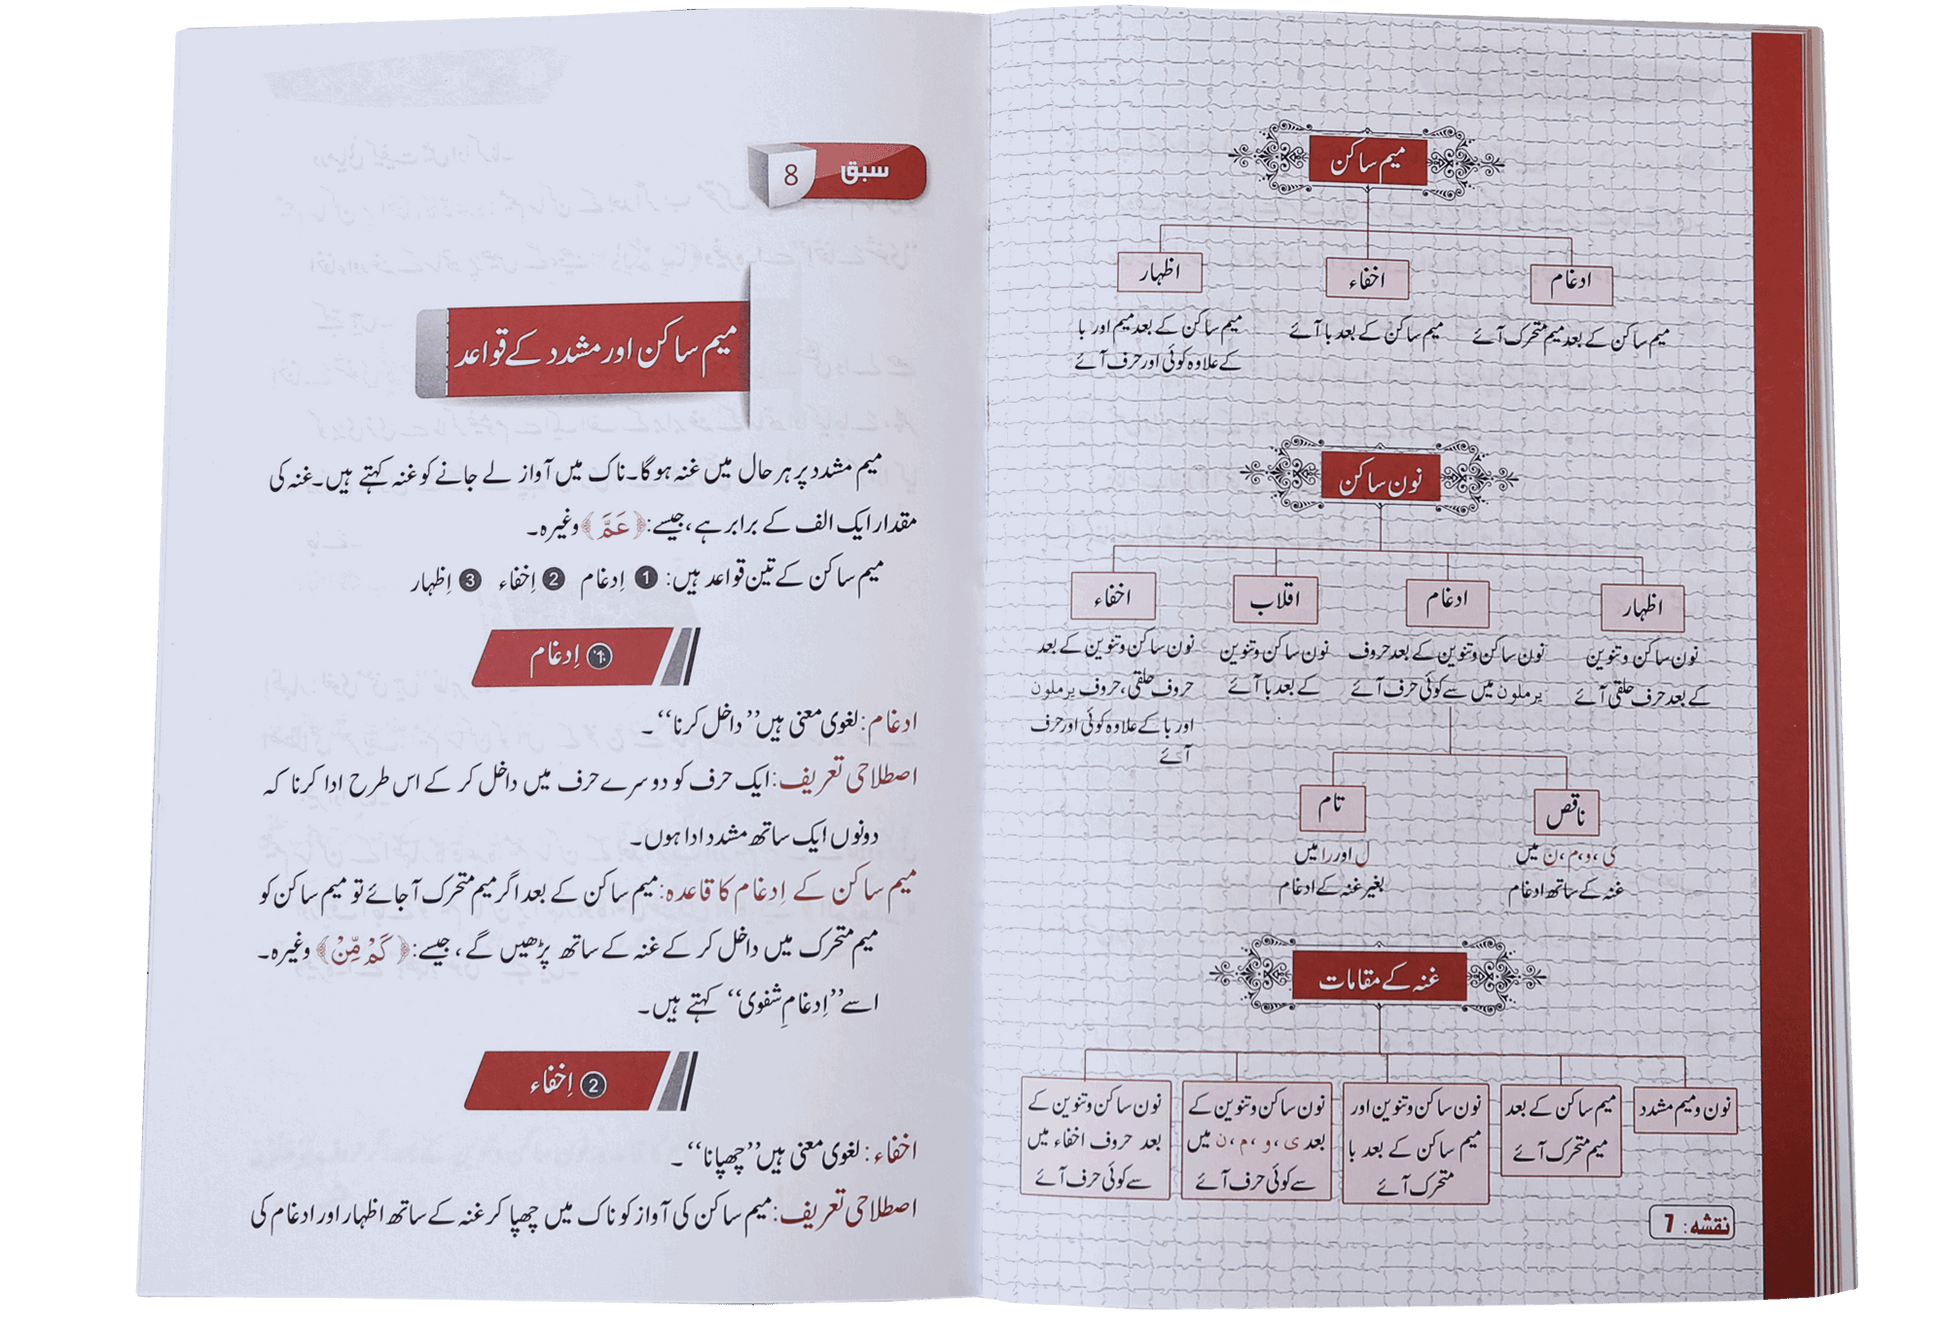 میم ساکن
ادغام
میم ساکن کے بعد میم متحرک آئے
اخفاء
میم ساکن کے بعد با آئے
اظہار
میم ساکن کے بعد میم اور با
کے علاوہ کوئی اور حرف آئے
نون ساکن
اظہار
نون ساکن و تنوین
کے بعد حرف حلقی آئے
ادغام
نون ساکن و تنوین کے بعد حروف
یرملون میں سے کوئی حرف آئے
اقلاب
نون ساکن و تنوین
کے بعد با آئے
اخفاء
نون ساکن و تنوین کے بعد
حروف حلقی، حروف یرملون
اور با کے علاوہ کوئی اور حرف
آئے
ناقص
ی، و، م، ن میں
غنہ کے ساتھ ادغام
تام
ل اور را میں
بغیر غنہ کے ادغام
غنہ کے مقامات
نون و میم مشدد
میم ساکن کے بعد
میم متحرک آئے
نون ساکن و تنوین اور
میم ساکن کے بعد با
متحرک آئے
نون ساکن و تنوین کے
بعد ی، و، م، ن میں
سے کوئی حرف آئے
نون ساکن و تنوین کے
بعد حروف اخفاء میں
سے کوئی حرف آئے
نقشہ: 7
سبق 8
میم ساکن اور مشدد کے قواعد
میم مشدد پر ہر حال میں غنہ ہوگا۔ ناک میں آواز لے جانے کو غنہ کہتے ہیں۔ غنہ کی
مقدار ایک الف کے برابر ہے، جیسے: ﴿عَمَّ﴾ وغیرہ۔
میم ساکن کے تین قواعد ہیں: ❶ اِدغام ❷ اِخفاء ❸ اِظہار
❶ اِدغام
ادغام: لغوی معنی ہیں ”داخل کرنا“۔
اصطلاحی تعریف: ایک حرف کو دوسرے حرف میں داخل کر کے اس طرح ادا کرنا کہ
دونوں ایک ساتھ مشدد ادا ہوں۔
میم ساکن کے اِدغام کا قاعدہ: میم ساکن کے بعد اگر میم متحرک آجائے تو میم ساکن کو
میم متحرک میں داخل کر کے غنہ کے ساتھ پڑھیں گے، جیسے: ﴿كَمْ مِّنْ﴾ وغیرہ۔
اسے ”اِدغامِ شفوی“ کہتے ہیں۔
❷ اِخفاء
اخفاء: لغوی معنی ہیں ”چھپانا“۔
اصطلاحی تعریف: میم ساکن کی آواز کو ناک میں چھپا کر غنہ کے ساتھ اظہار اور ادغام کی